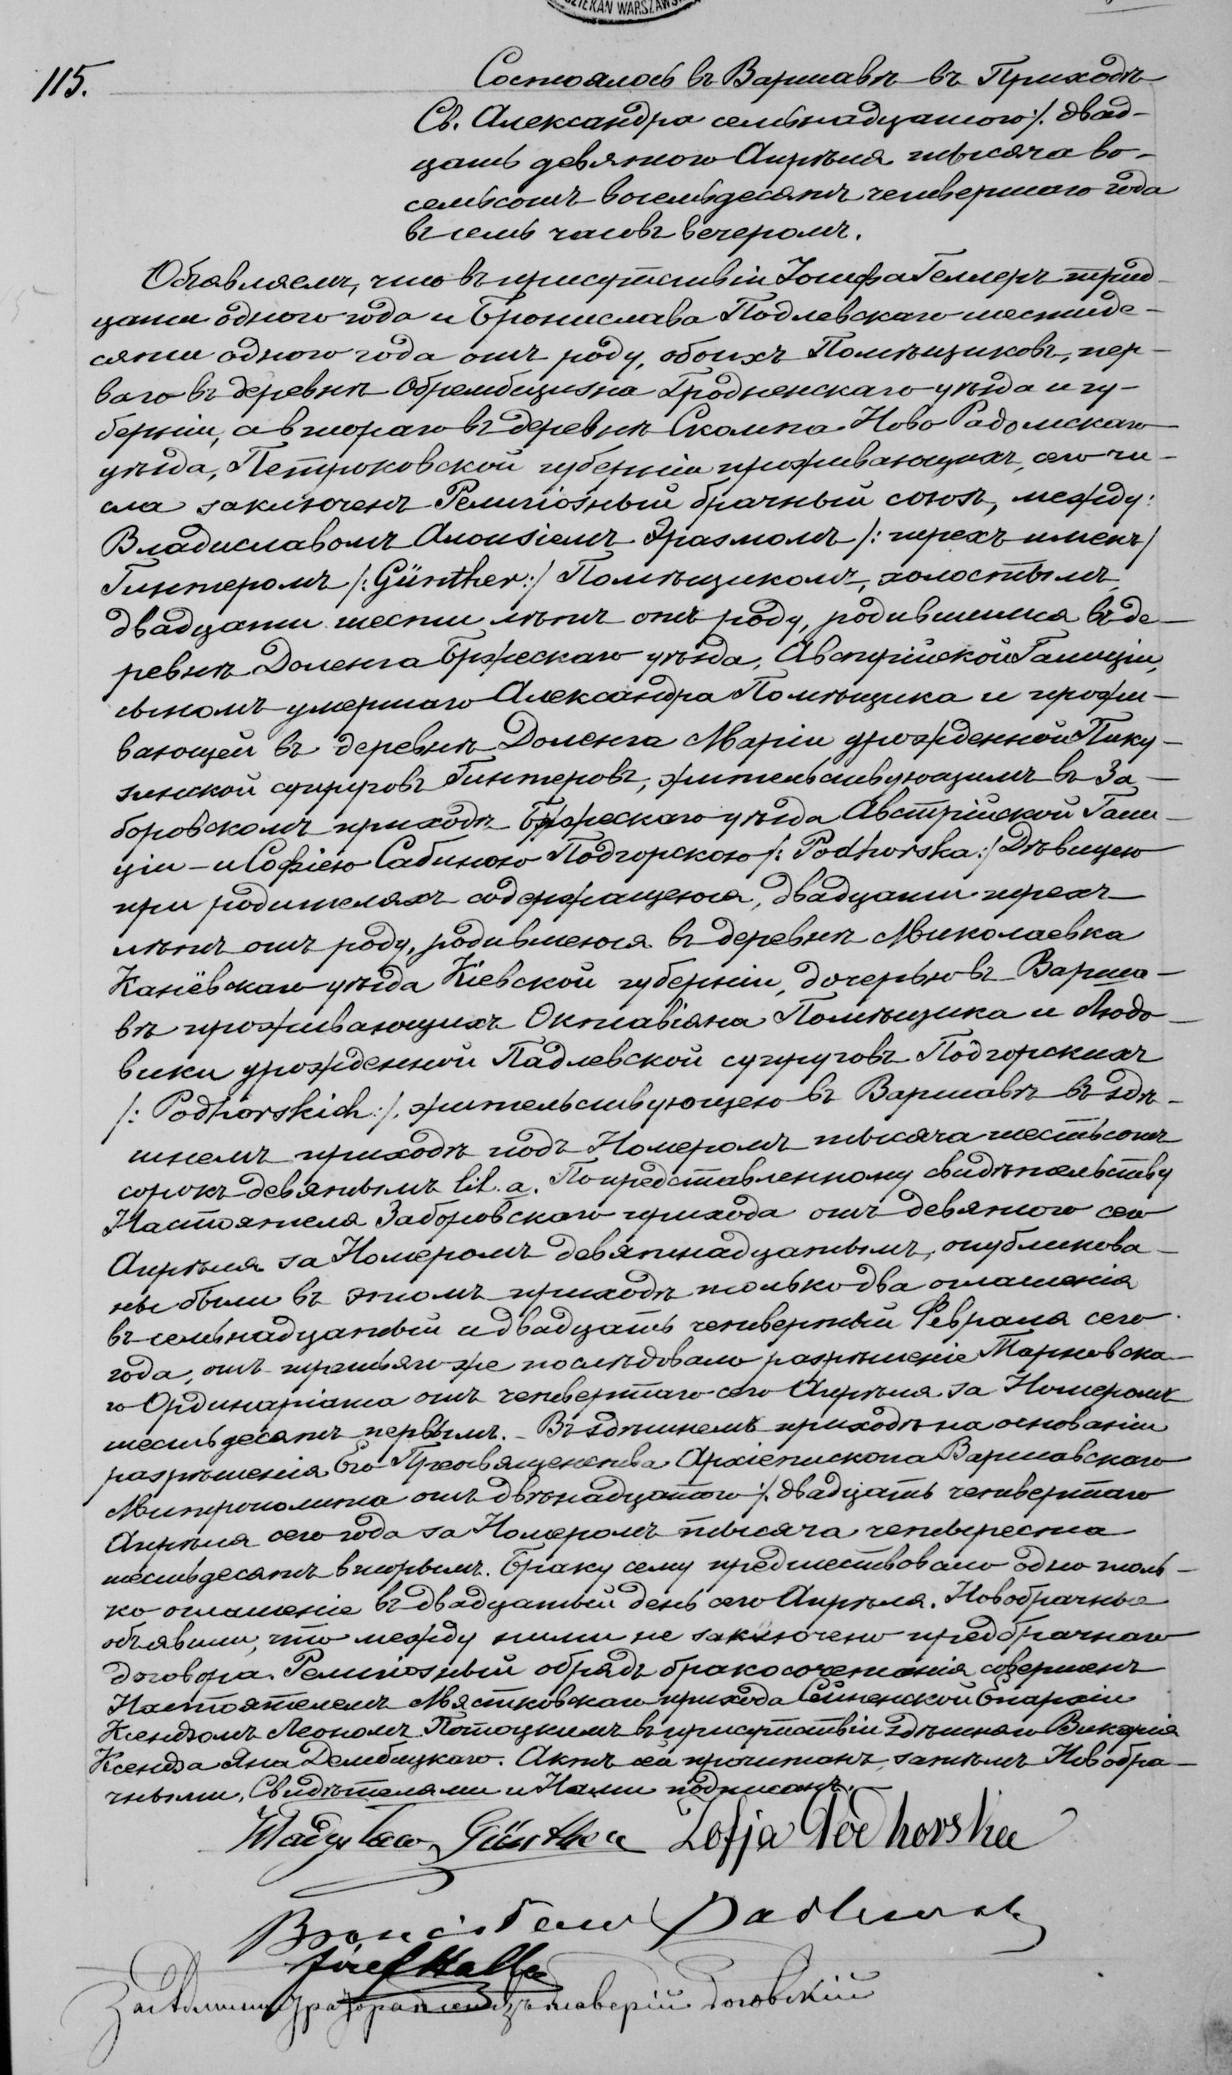 DZIEKAN WARSZAWSK
115.
Состоялось въ Варшавѣ въ Приходѣ
Св. Александра семьнадцатаго /. двад-
цать девятого Апрѣля тысяча во-
семьсотъ восемьдесятъ четвертаго года
въ семь часовъ вечеромъ.
Объявляемъ, что въ присутствіи Іосифа Геллеръ трид-
цати одного года и Бронислава Подлевскаго шестиде-
сяти одного года отъ роду, обоихъ Помѣщиковъ, пер-
ваго въ деревнѣ Обрембщизна Гродненскаго уѣзда и гу-
берніи, а втораго въ деревнѣ Скомпа Ново Радомскаго
уѣзда, Петроковской губерніи проживающихъ, сего чи-
сла заключенъ Религіозный брачный союзъ, между:
Владиславомъ Алоизіемъ Эразмомъ /: трехъ именъ /
Гинтеромъ /: Günther :/ Помѣщикомъ, холостымъ,
двадцати шести лѣтъ отъ роду, родившимся въ де-
ревнѣ Доленга Бржескаго уѣзда, Австрійской Галиціи,
сыномъ умершаго Александра Помѣщика и прожи-
вающей въ деревнѣ Доленга Маріи урожденной Пику-
зинской супруговъ Гинтеровъ, жительствующимъ въ За-
боровскомъ приходѣ Бржескаго уѣзда Австрійской Гали-
ціи – и Софіею Сабиною Подгорскою /: Podhorska :/ Дѣвицею
при родителяхъ содержащеюся, двадцати трехъ
лѣтъ отъ роду, родившеюся въ деревнѣ Миколаевка
Канёвскаго уѣзда Кіевской губерніи, дочерью въ Варша-
вѣ проживающихъ Октавіяна Помѣщика и Людо-
вики урожденной Падлевской супруговъ Подгорскихъ
/: Podhorskich :/, жительствующею въ Варшавѣ въ здѣ-
шнемъ приходѣ подъ Номеромъ тысяча шестьсотъ
сорокъ девятымъ lit. a. По представленному свидѣтельству
Настоятеля Заборовскаго прихода отъ девятого сего
Апрѣля за Номеромъ девятнадцатымъ, опубликова-
ны были въ этомъ приходѣ только два оглашенія
въ семьнадцатый и двадцать четвертый Февраля сего
года, отъ третьяго же послѣдовало разрѣшеніе Тарновска-
го Ординаріата отъ четвертаго сего Апрѣля за Номеромъ
шестьдесятъ первымъ. – Въ здѣшнемъ приходѣ на основаніи
разрѣшенія Его Преосвященства Архіепископа Варшавскаго
Митрополита отъ двѣнадцатого /. двадцать четвертаго
Апрѣля сего года за Номеромъ тысяча четыреста
шестьдесятъ вторымъ. Браку сему предшествовало одно толь-
ко оглашеніе въ двадцатый день сего Апрѣля. Новобрачные
объявили, что между ними не заключено предбрачнаго
договора. Религіозный обрядъ бракосочетанія совершенъ
Настоятелемъ Мястковскаго прихода Сейненской Епархіи
Ксендзомъ Леономъ Потоцкимъ въ присутствіи здѣшняго Викарія
Ксендза Яна Дембицкаго. Актъ сей прочитанъ, затѣмъ Новобра-
чными, Свидѣтелями и Нами подписанъ.
Władysław Günther Zofja Podhorska
Bronisław Padlewski
Józef Halle